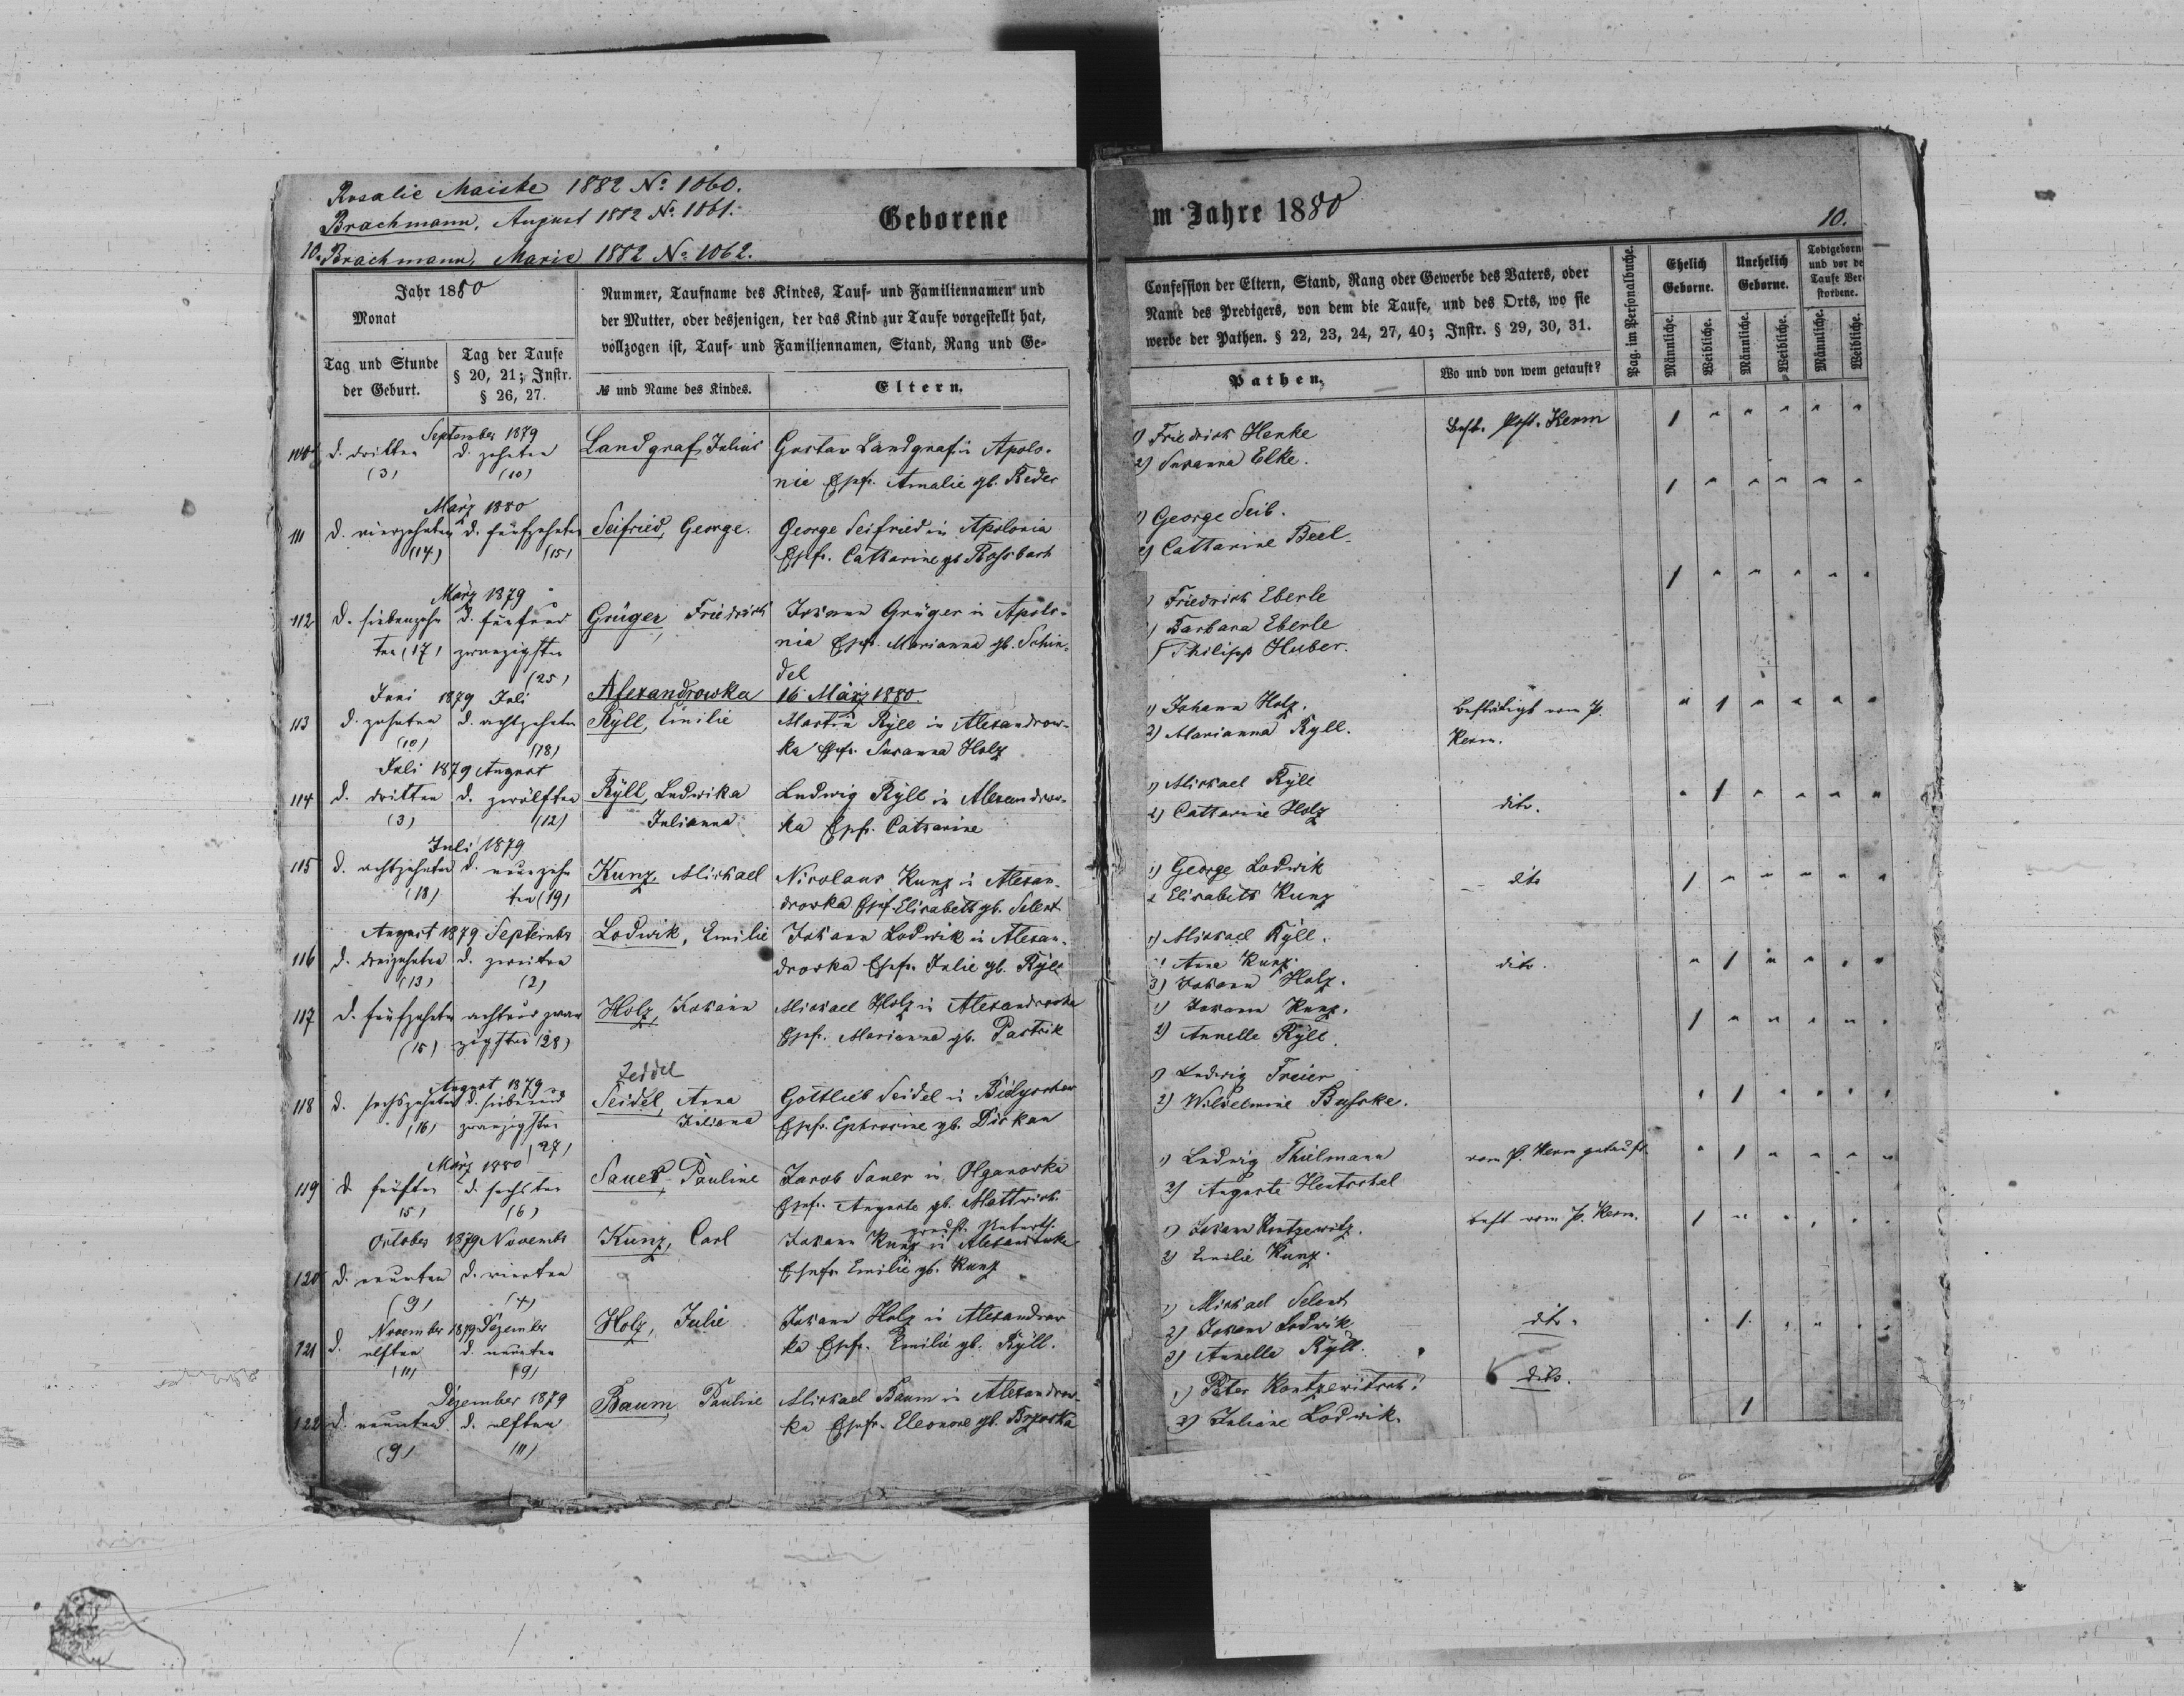 Rosalie Maiske 1882 No 1060.
Brachmann, August 1882 No 1061.
10. Brachmann, Marie 1882 No 1062.
Geborene
Jahr 1880
Monat
Tag und Stunde
der Geburt.
Tag der Taufe
§ 20, 21; Instr.
§ 26, 27.
Nummer, Taufname des Kindes, Tauf- und Familiennamen und
der Mutter, oder desjenigen, der das Kind zur Taufe vorgestellt hat,
vollzogen ist, Tauf- und Familiennamen, Stand, Rang und Ge-
№ und Name des Kindes.
Eltern.
September 1879
d. dritten d. zehnten Landgraf, Julius Gustav Landgraf in Apolo-
(3) (10) nie Ehefr. Amalie gb. Reder
März 1880
111 d. vierzehnten d. fünfzehnten Seifried, George. George Seifried in Apolonia
(14) (15) Ehefr. Catharine gb. Rossbach
März 1879
112 d. siebenzehn d. fünfund Grüger, Friedrich Johann Grüger in Apolo-
ten (17) zwanzigsten nia Ehefr. Marianna gb. Schin-
(25) del
Alexandrowka 16 März 1880.
Juni 1879 Juli
113 d. zehnten d. achtzehnten Ryll, Emilie Martin Ryll in Alexandrow-
(10) (18) ka Ehefr. Susanna Holz
Juli 1879 August
114 d. dritten d. zwölften Ryll, Ludwika Ludwig Ryll in Alexandrow-
(3) (12) Julianna ka Ehefr. Catharine
Juli 1879
115 d. achtzehnten d. neunzehn Kunz, Michael Nicolaus Kunz in Alexan-
(18) ten (19) drowka Ehefr. Elisabeth gb. Selent
August 1879 September
116 d. dreizehnten d. zweiten Lodwik, Emilie Johann Lodwik in Alexan-
(13) (2) drowka Ehefr. Julie gb. Ryll
117 d. fünfzehnten achtundzwan Holz, Johann Michael Holz in Alexandrowka
(15) zigsten (28) Ehefr. Marianna gb. Pastrik
August 1879
Zeddel
118 d. sechszehnten d. siebenund Seidel, Anna Gottlieb Seidel in
(16) zwanzigsten Juliana Ehefr. gb.
(27)
März 1880
119 d. fünften d. sechsten Sauer, Pauline Jacob Sauer in Olganowka
(5) (6) Ehefr. Auguste gb.
October 1879 November
120 d. neunten d. vierten Kunz, Carl Johann Kunz in Alexandrowka
(9) (4) Ehefr. Emilie gb. Kunz
November 1879 Dezember
121 d. elften d. neunten Holz, Julie Johann Holz in Alexandrow
(11) (9) ka Ehefr. Emilie gb. Ryll.
Dezember 1879
122 d. neunten d. elften Baum, Pauline Michael Baum in Alexandrow-
(9) (11) ka Ehefr. Eleonore gb. Brzoska
m Jahre 1880
10.
Confession der Eltern, Stand, Rang oder Gewerbe des Vaters, oder
Name des Predigers, von dem die Taufe, und des Orts, wo sie
werbe der Pathen. § 22, 23, 24, 27, 40; Instr. § 29, 30, 31.
Pathen.
Wo und von wem getauft?
Pag. im Personalbuche.
Ehelich Geborne.
Unehelich Geborne.
Todtgeborne und vor der Taufe Verstorbene.
Männliche. Weibliche. Männliche. Weibliche. Männliche. Weibliche.
1) Friedrich Henke Best. Past. Kerm
2) Susanna Elke.
1) George Seib.
2) Catharine Beel.
Friedrich Eberle
Barbara Eberle
Philipp Huber.
1) Johann Holz. Bestätigt vom P.
2) Marianna Ryll. Kerm.
1) Michael Ryll
2) Catharine Holz dito.
1) George Lodwik
2 Elisabeth Kunz dito
1) Michael Ryll.
Anna Kunz. dito.
3) Johann Holz.
1) Johann Kunz.
2) Annelle Ryll.
1) Ludwig Freier
2) Wilhelmine
1) Ludwig Thielmann vom P. Kerm getauft
2) Auguste Hentschel
1) Johann best vom P. Kerm.
2) Emilie Kunz.
1) Michael Selent
2) Johann Lodwik dito.
3) Annella Ryll.
1) Peter Kontzewitsch dito.
2) Juliane Lodwik.